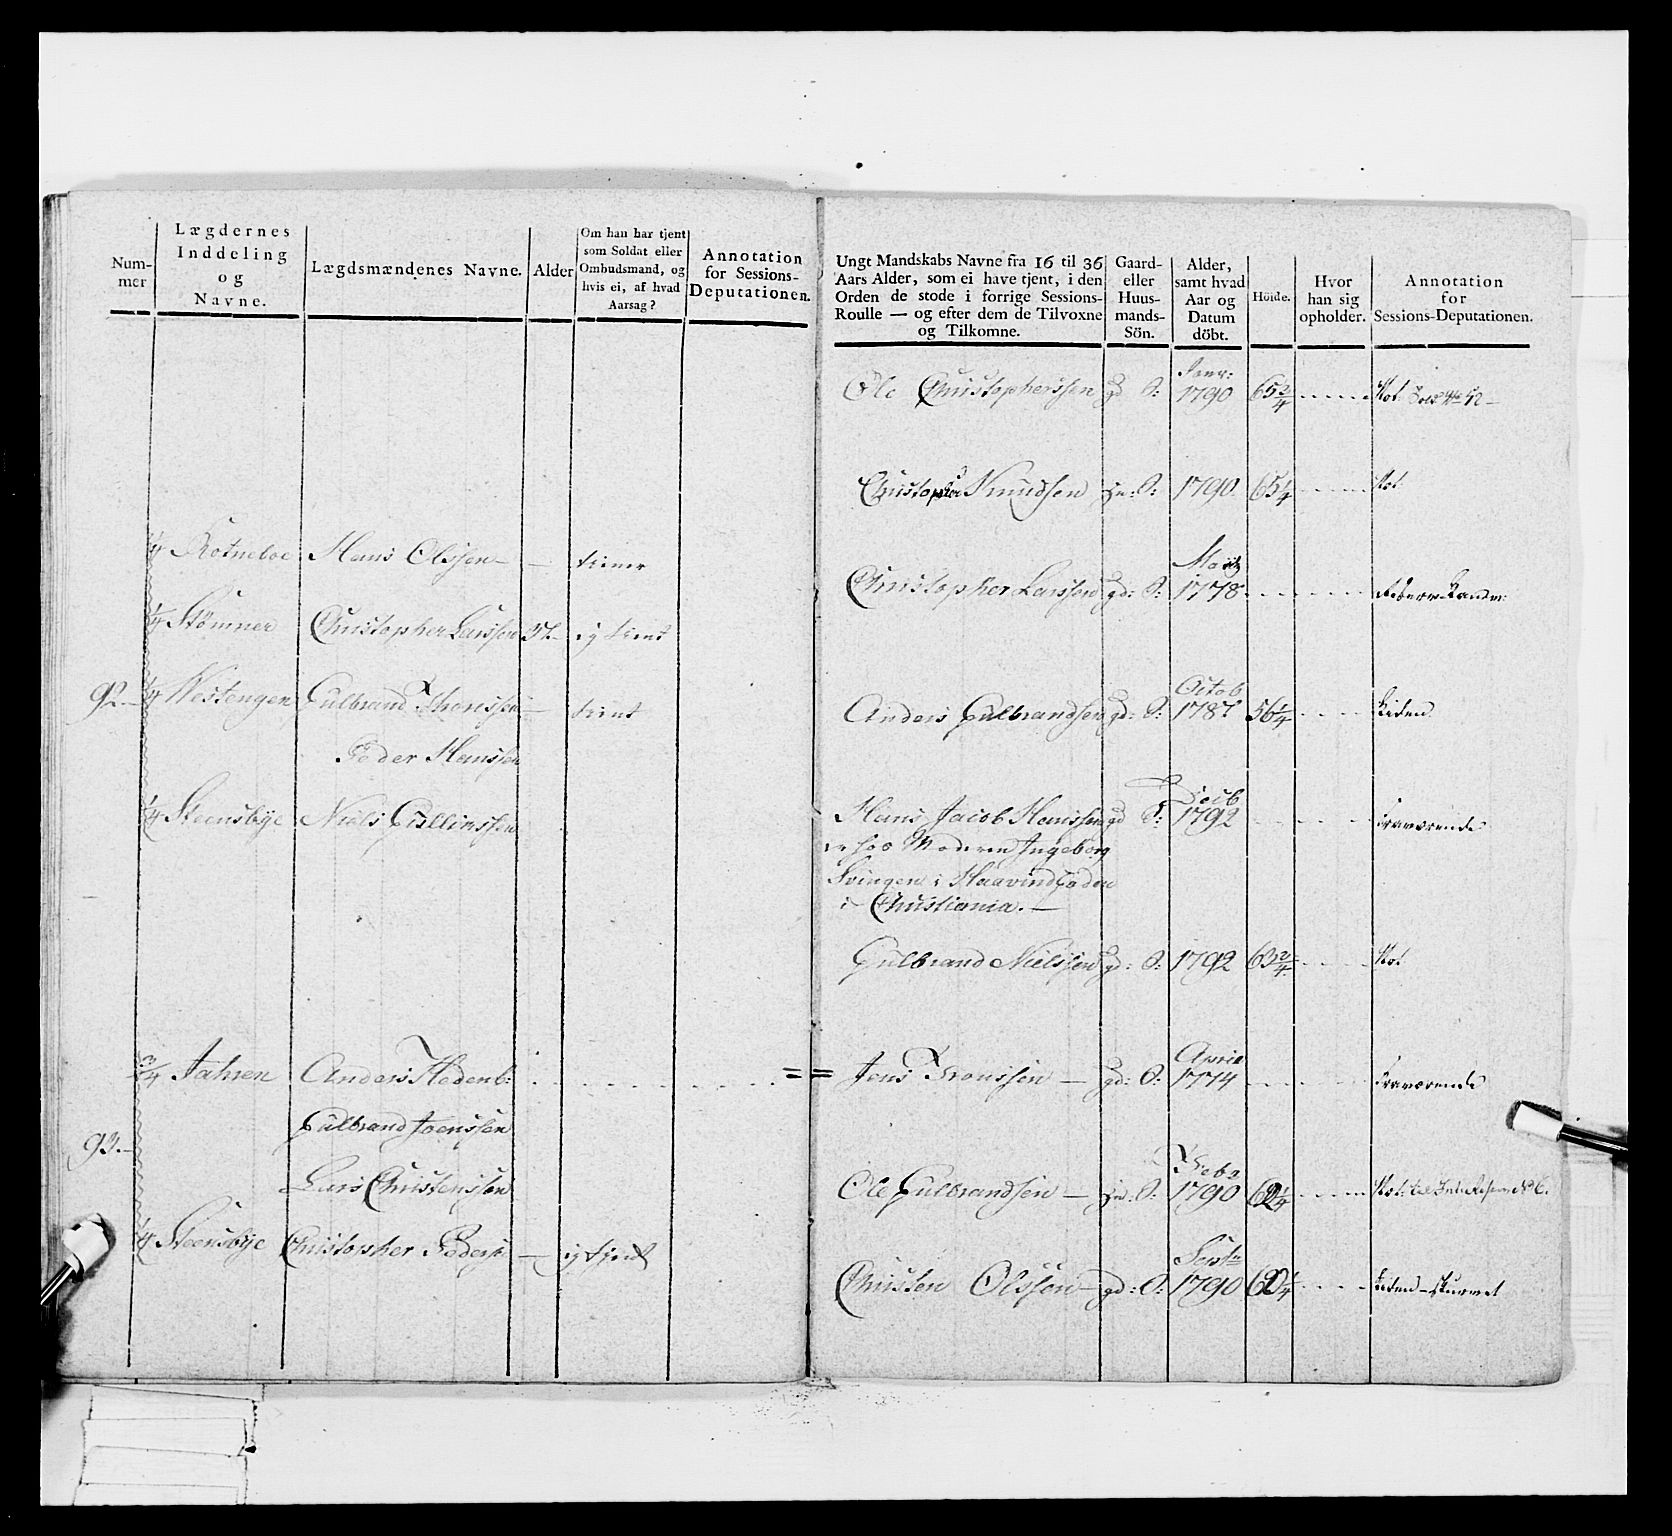 Num-
mer
Lægdernes
Inddeling
og
Navne.
Lægdsmændenes Navne.
Alder
Om han har tjent
som Soldat eller
Ombudsmand, og
hvis ei, af hvad
Aarsag?
Annotation
for Sessions-
Deputationen.
1/4 Hans Olssen —
1/4 Stömner Christopher Larssen 37. ej tient
92. 1/4 Westengen Gulbrand Thorssen — tient
Peder Hanssen
1/4 Steensbye Niels
3/4 Jahren Anders Hedenb:
Gulbrand Joenssen
93. Lars Christenssen
1/4 Steensbye Christopher Peders: — ej tjent
Ungt Mandskabs Navne fra 16 til 36
Aars Alder, som ei have tjent, i den
Orden de stode i forrige Sessions-
Roulle — og efter dem de Tilvoxne
og Tilkomne.
Gaard-
eller
Huus-
mands-
Sön.
Alder,
samt hvad
Aar og
Datum
döbt.
Höide.
Hvor
han sig
opholder.
Annotation
for
Sessions-Deputationen.
Janr:
Ole Christopherssen gd S: 1790 65 2/4
Christopher Knudsen S: 1790 65 1/4
Martz
Christopher Larssen gd: S: 1778
Octob
Anders Gulbrandsen gd: S: 1787 56 1/4 Liden
Hans Jacob Hanssen gd S: 1792 Fraværende
er hos Moderen Ingeborg
Svingen i
i Christiania. —
Gulbrand Nielssen gd: S: 1792 63 2/4
April
Jens — gd: S: 1774 Fraværende
Febr
Ole Gulbrandsen — S: 1790
Septr
Christen Olssen — gd: S: 1790 60 1/4 Liden